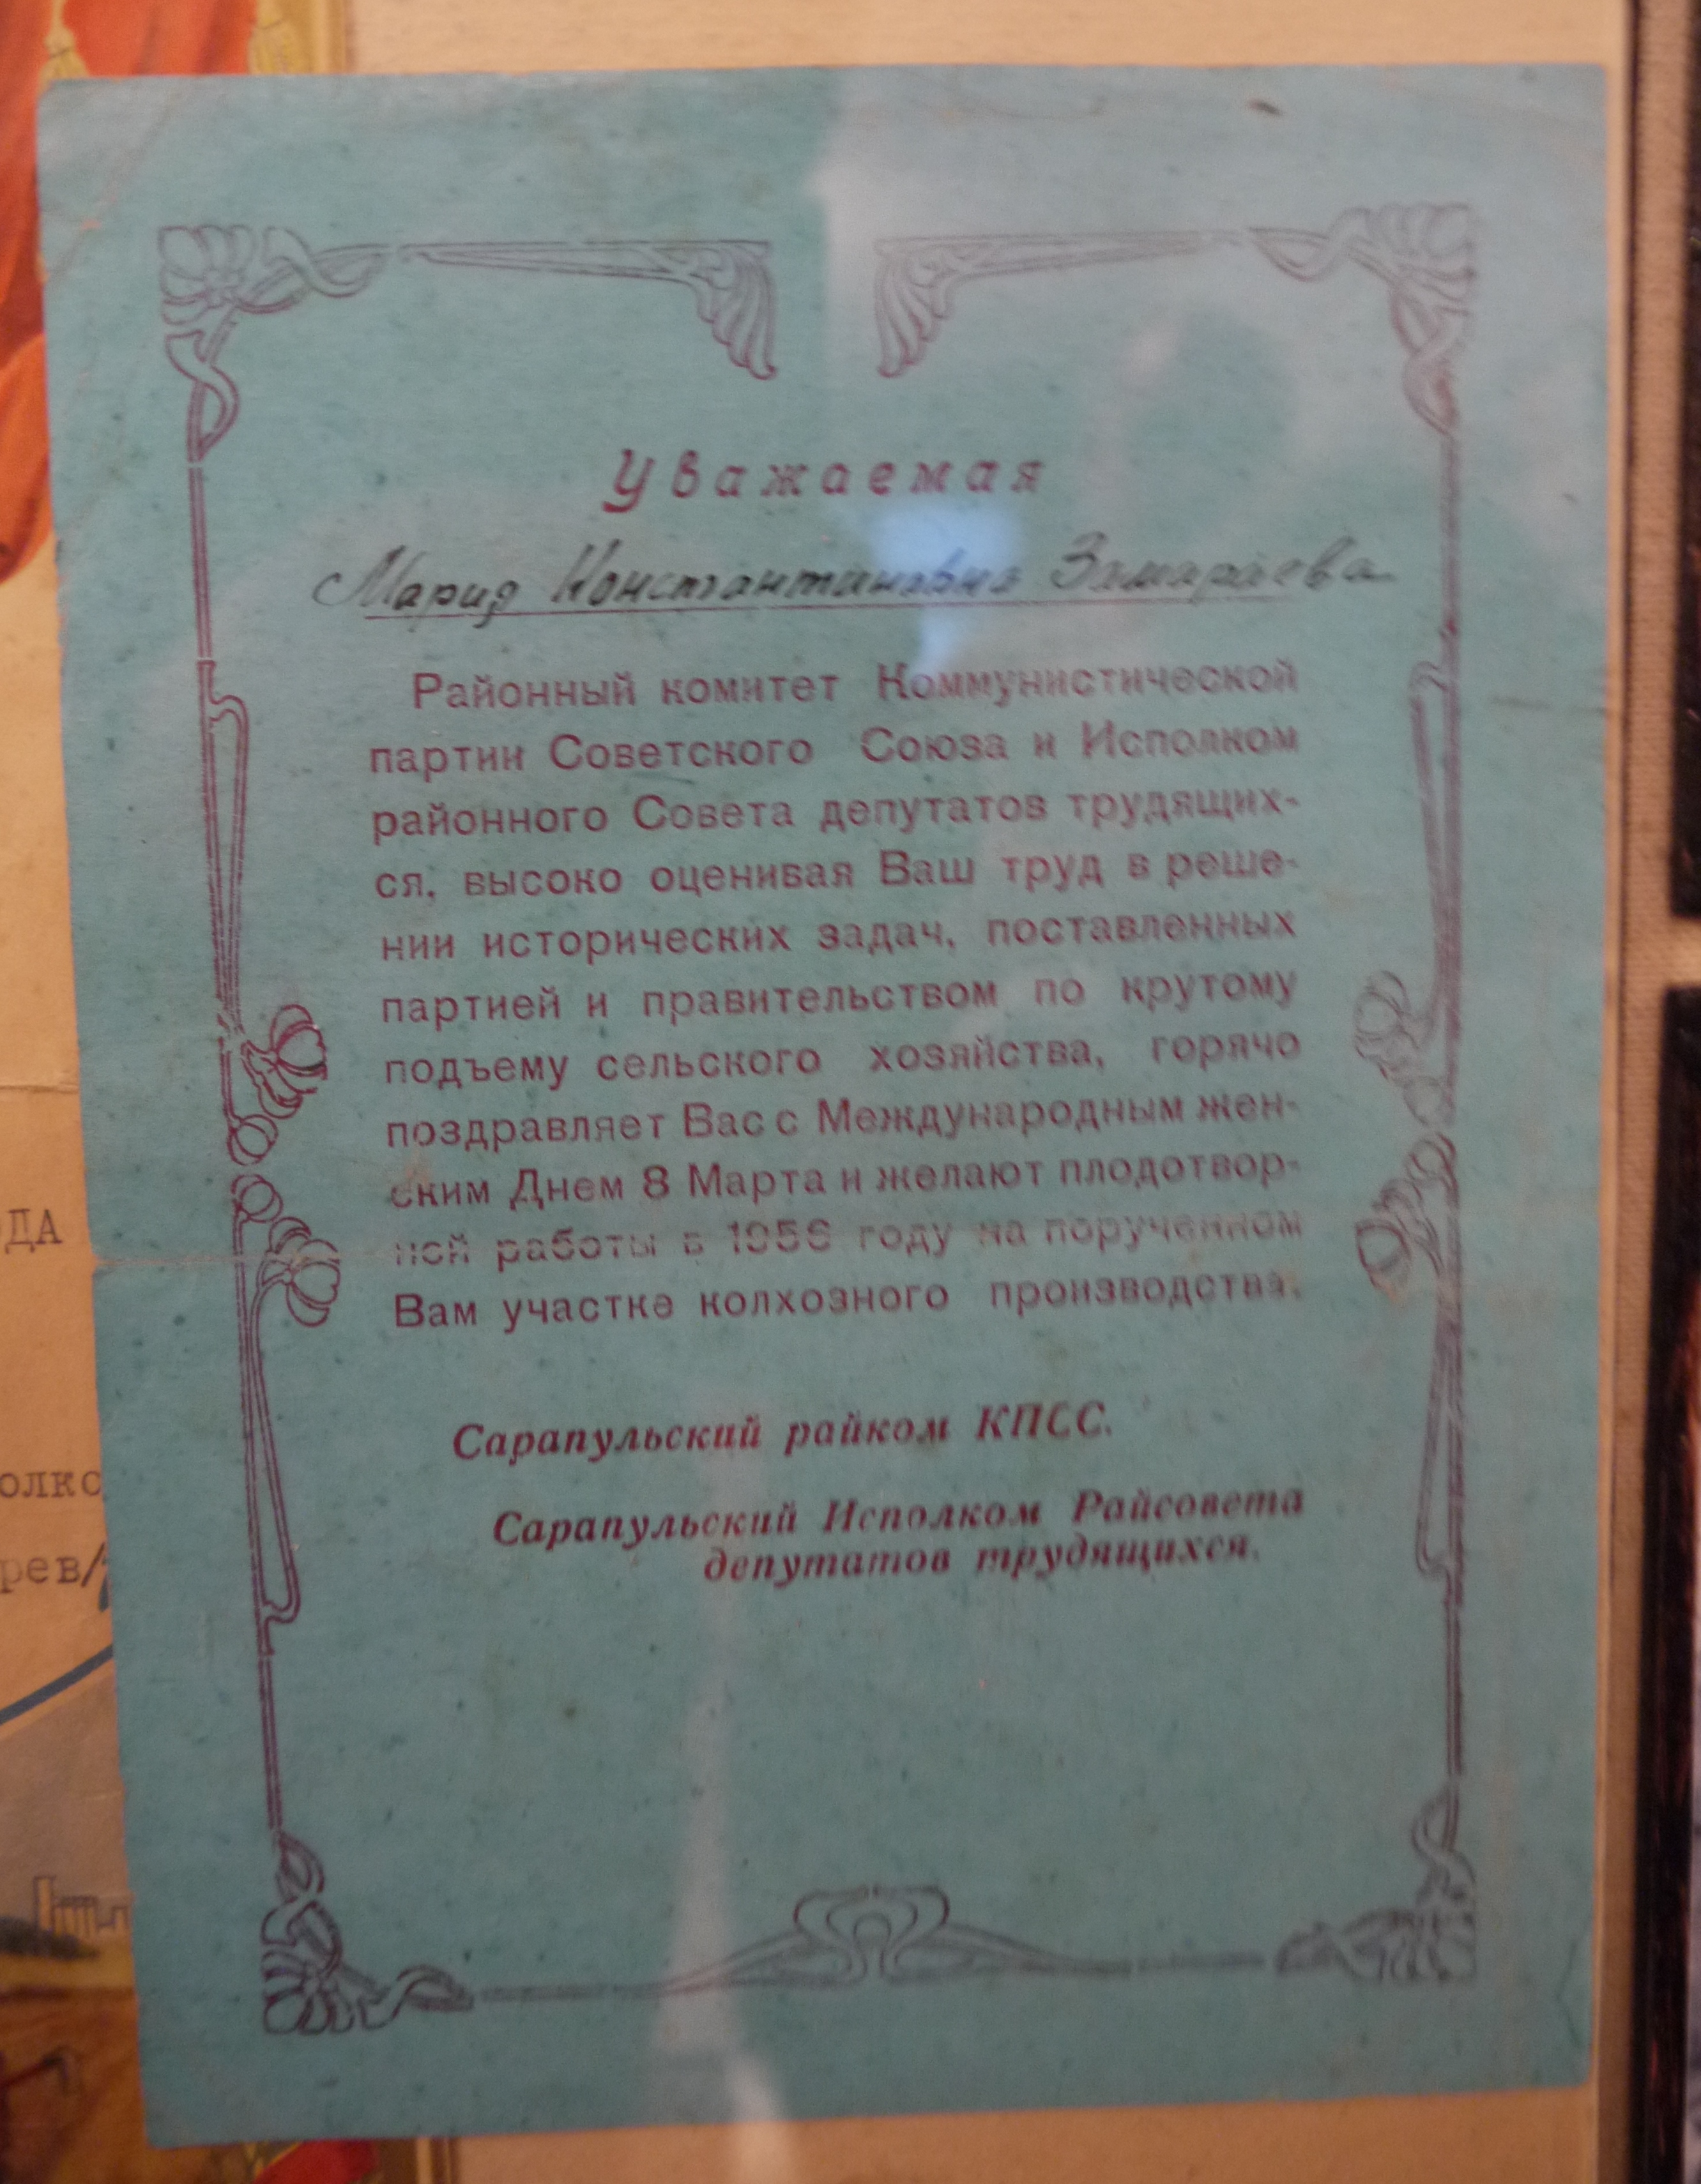 Уважаемая
Мария Константиновна Замараева
Районный комитет Коммунистической
партии Советского Союза и Исполком
районного Совета депутатов трудящих-
ся, высоко оценивая Ваш труд в реше-
нии исторических задач, поставленных
партией и правительством по крутому
подъему сельского хозяйства, горячо
поздравляет Вас с Международным жен-
ским Днем 8 Марта и желают плодотвор-
ной работы в 1956 году на порученном
Вам участке колхозного производства.
Сарапульский райком КПСС.
Сарапульский Исполком Райсовета
депутатов трудящихся.
ОДА
олкс
рев/